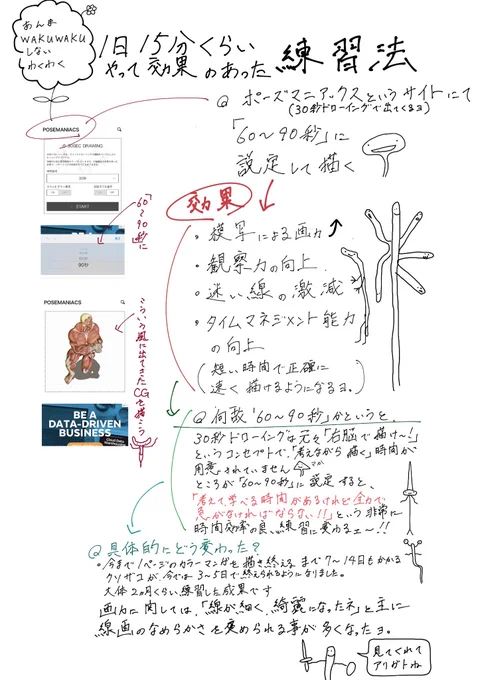 あんま
WAKUWAKU
しない
わくわく
1日15分くらい
やって効果のあった練習法
Q ポーズマニアックスというサイトにて
(30秒ドローイングで出てくるヨ)
「60〜90秒」に
設定して描く
POSEMANIACS
30SEC DRAWING
START
90秒
「60〜90秒」に
POSEMANIACS
こういう風に出てきたCGを描こう
BE A
DATA-DRIVEN
BUSINESS
効果
・模写による画力↑
・観察力の向上
・迷い線の激減
・タイムマネジメント能力
の向上
(短い時間で正確に
速く描けるようになるヨ。)
Q 何故「60〜90秒」かというと、
30秒ドローイングは元々「右脳で描け〜!」
というコンセプトで、「考えながら描く」時間が
用意されていません
ところが「60〜90秒」に設定すると、
「考えて学べる時間があるけれど全力で
急がなければならない!!」という非常に
時間効率の良い練習に変わるェ〜!!
Q 具体的にどう変わった?
・今まで1ページのカラーマンガを描き終えるまで7〜14日もかかる
クソザコが、今では3〜5日で終えられるようになりました。
大体2ヵ月くらい練習した成果です
画力に関しては、「線が細く、綺麗になったネ」と主に
線画のなめらかさを褒められる事が多くなったヨ。
見てくれて
アリガトね